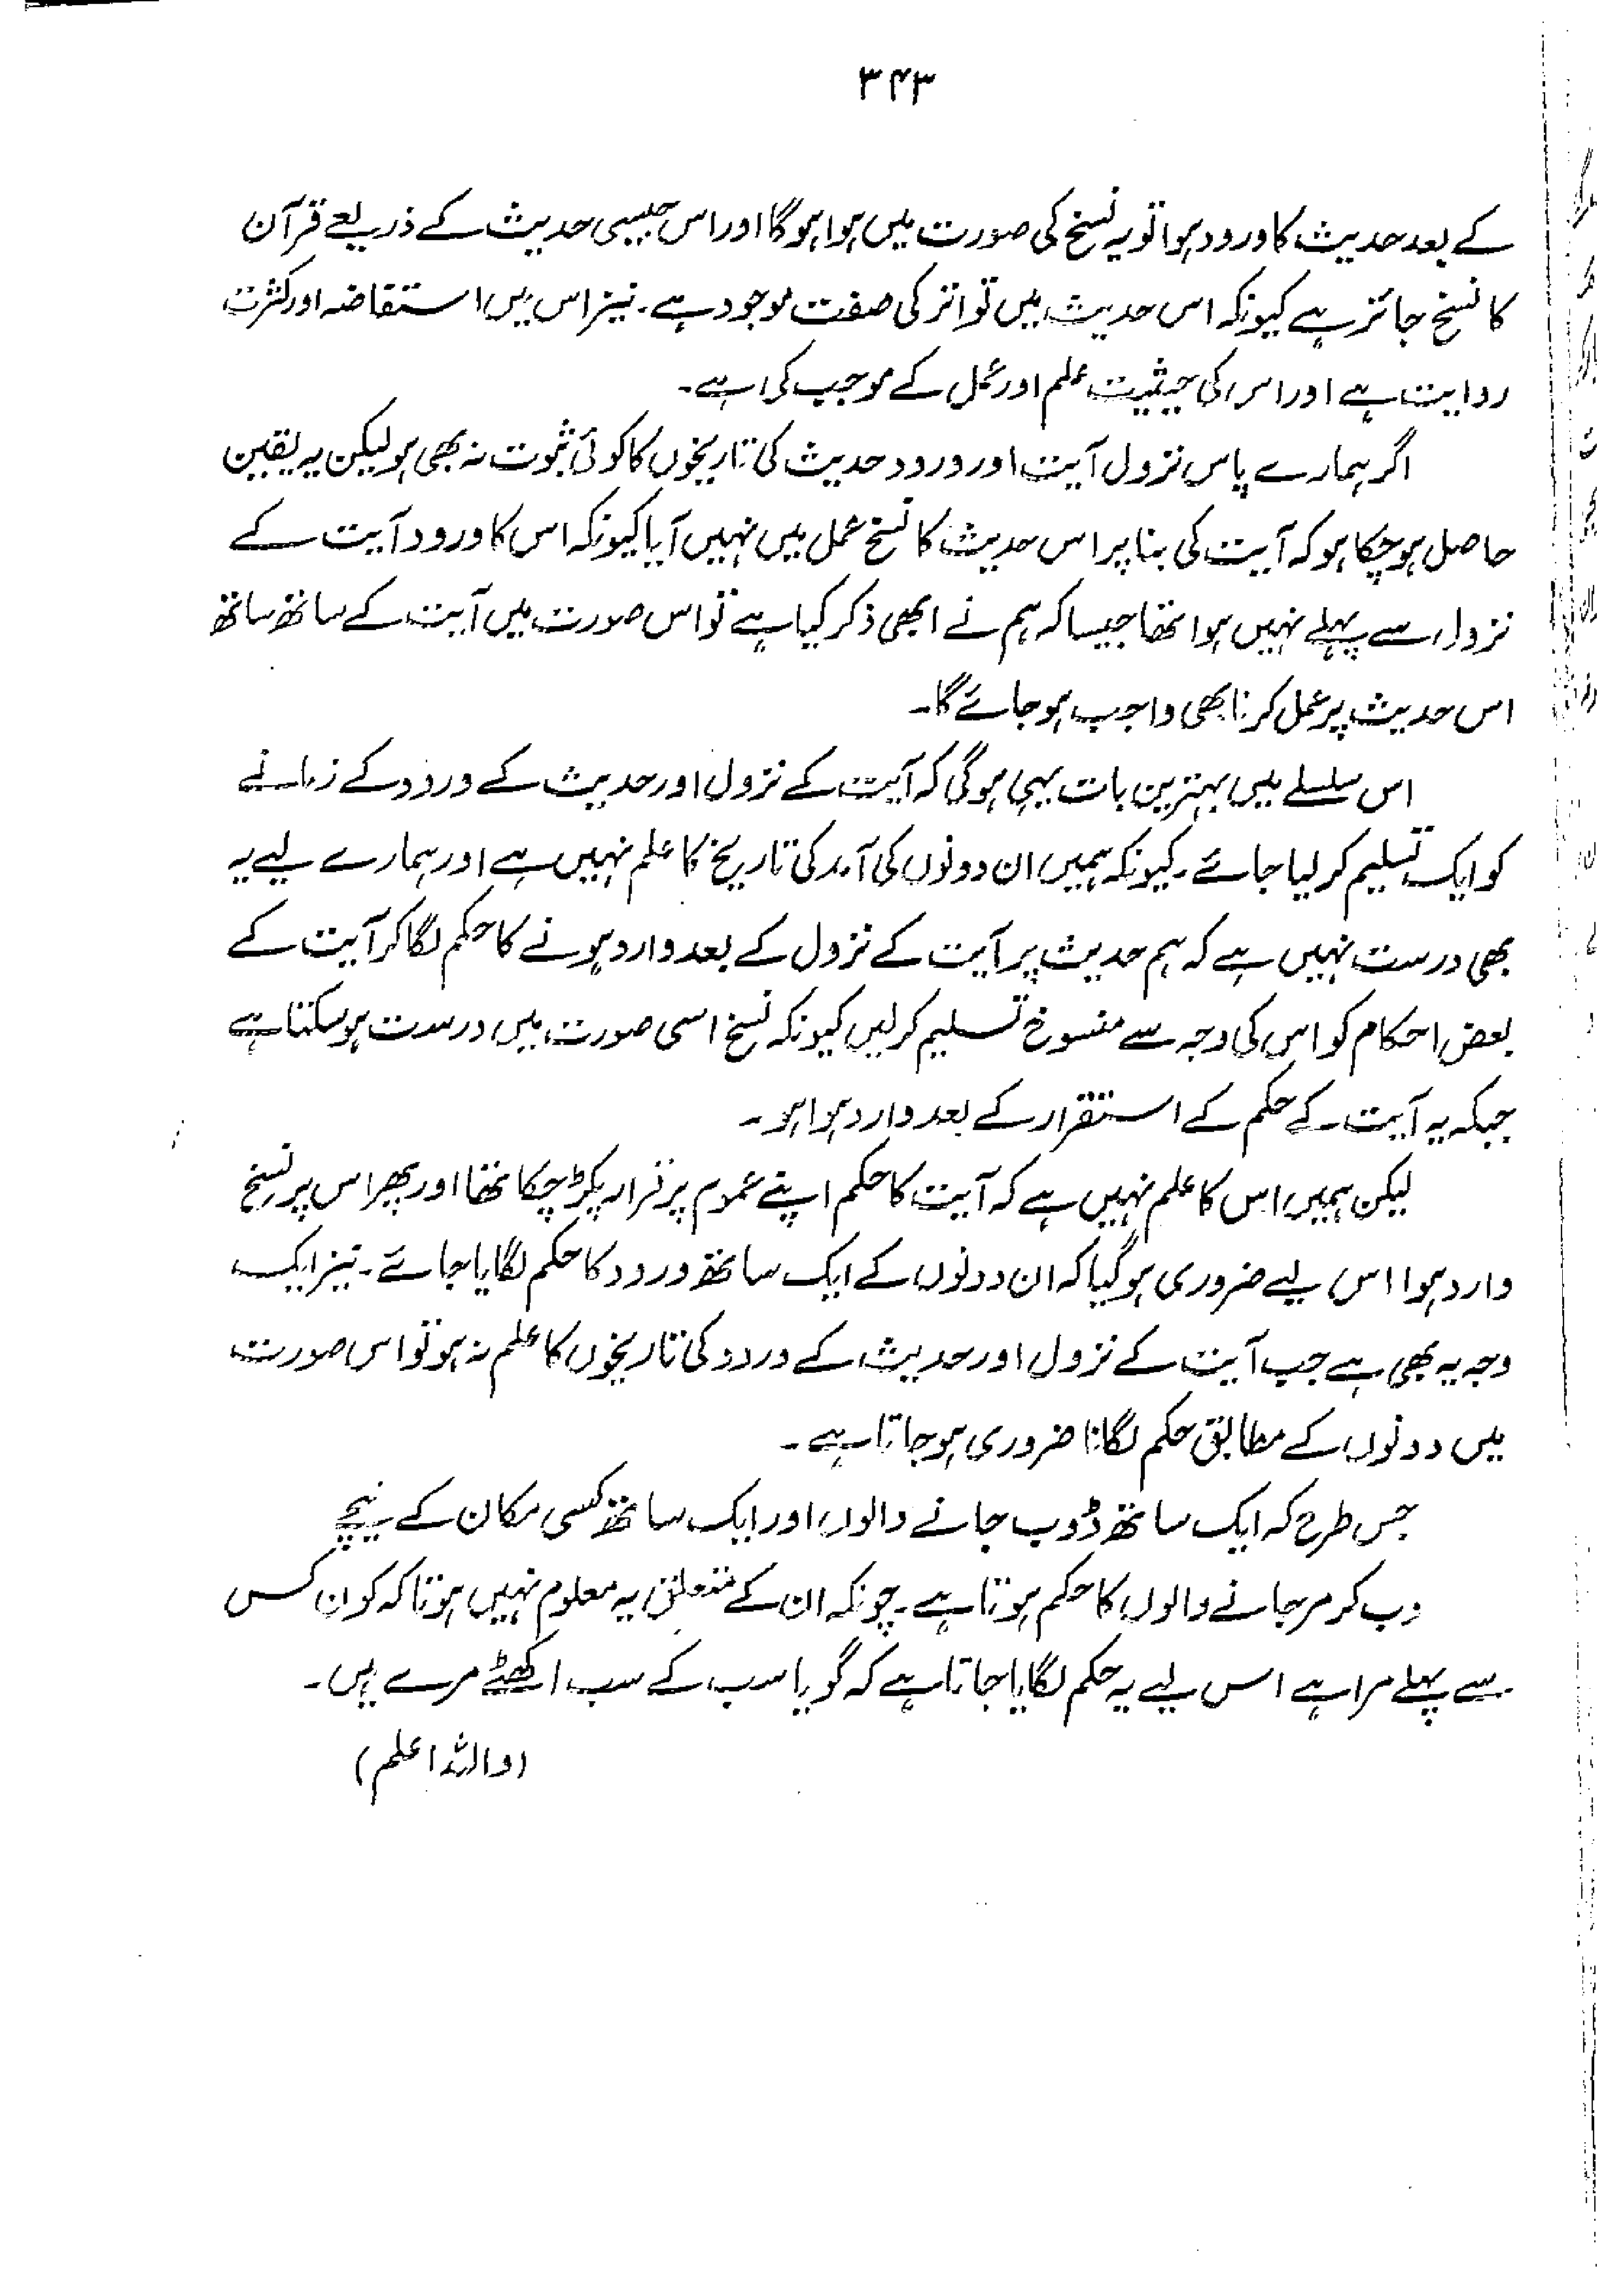 ۳۴۳
کے بعد حدیث کا ورود ہوا تو یہ نسخ کی صورت میں ہوا ہوگا اور اس جیسی حدیث کے ذریعے قرآن
کا نسخ جائز ہے کیونکہ اس حدیث میں تواتر کی صفت موجود ہے۔ نیز اس میں استفاضہ اور کثرت
روایت ہے اور اس کی حیثیت علم اور عمل کے موجب کی ہے۔
اگر ہمارے پاس نزول آیت اور ورود حدیث کی تاریخوں کا کوئی ثبوت نہ بھی ہو لیکن یہ یقین
حاصل ہو چکا ہو کہ آیت کی بنا پر اس حدیث کا نسخ عمل میں نہیں آیا کیونکہ اس کا ورود آیت کے
نزول سے پہلے نہیں ہوا تھا جیسا کہ ہم نے ابھی ذکر کیا ہے تو اس صورت میں آیت کے ساتھ ساتھ
اس حدیث پر عمل کرنا بھی واجب ہو جائے گا۔
اس سلسلے میں بہترین بات یہی ہوگی کہ آیت کے نزول اور حدیث کے ورود کے زمانے
کو ایک تسلیم کر لیا جائے۔ کیونکہ ہمیں ان دونوں کی آمد کی تاریخ کا علم نہیں ہے اور ہمارے لیے یہ
بھی درست نہیں ہے کہ ہم حدیث پر آیت کے نزول کے بعد وارد ہونے کا حکم لگا کر آیت کے
بعض احکام کو اس کی وجہ سے منسوخ تسلیم کر لیں کیونکہ نسخ اسی صورت میں درست ہو سکتا ہے
جبکہ یہ آیت کے حکم کے استقرار کے بعد وارد ہوا ہو۔
لیکن ہمیں اس کا علم نہیں ہے کہ آیت کا حکم اپنے عموم پر قرار پکڑ چکا تھا اور پھر اس پر نسخ
وارد ہوا اس لیے ضروری ہو گیا کہ ان دونوں کے ایک ساتھ ورود کا حکم لگایا جائے۔ نیز ایک
وجہ یہ بھی ہے جب آیت کے نزول اور حدیث کے ورود کی تاریخوں کا علم نہ ہو تو اس صورت
میں دونوں کے مطابق حکم لگانا ضروری ہو جاتا ہے۔
جس طرح کہ ایک ساتھ ڈوب جانے والوں اور ایک ساتھ کسی مکان کے نیچے
دب کر مر جانے والوں کا حکم ہوتا ہے۔ چونکہ ان کے متعلق یہ معلوم نہیں ہوتا کہ کون کس
سے پہلے مرا ہے اس لیے یہ حکم لگایا جاتا ہے کہ گویا سب کے سب اکھٹے مرے ہیں۔
(واللہ اعلم)